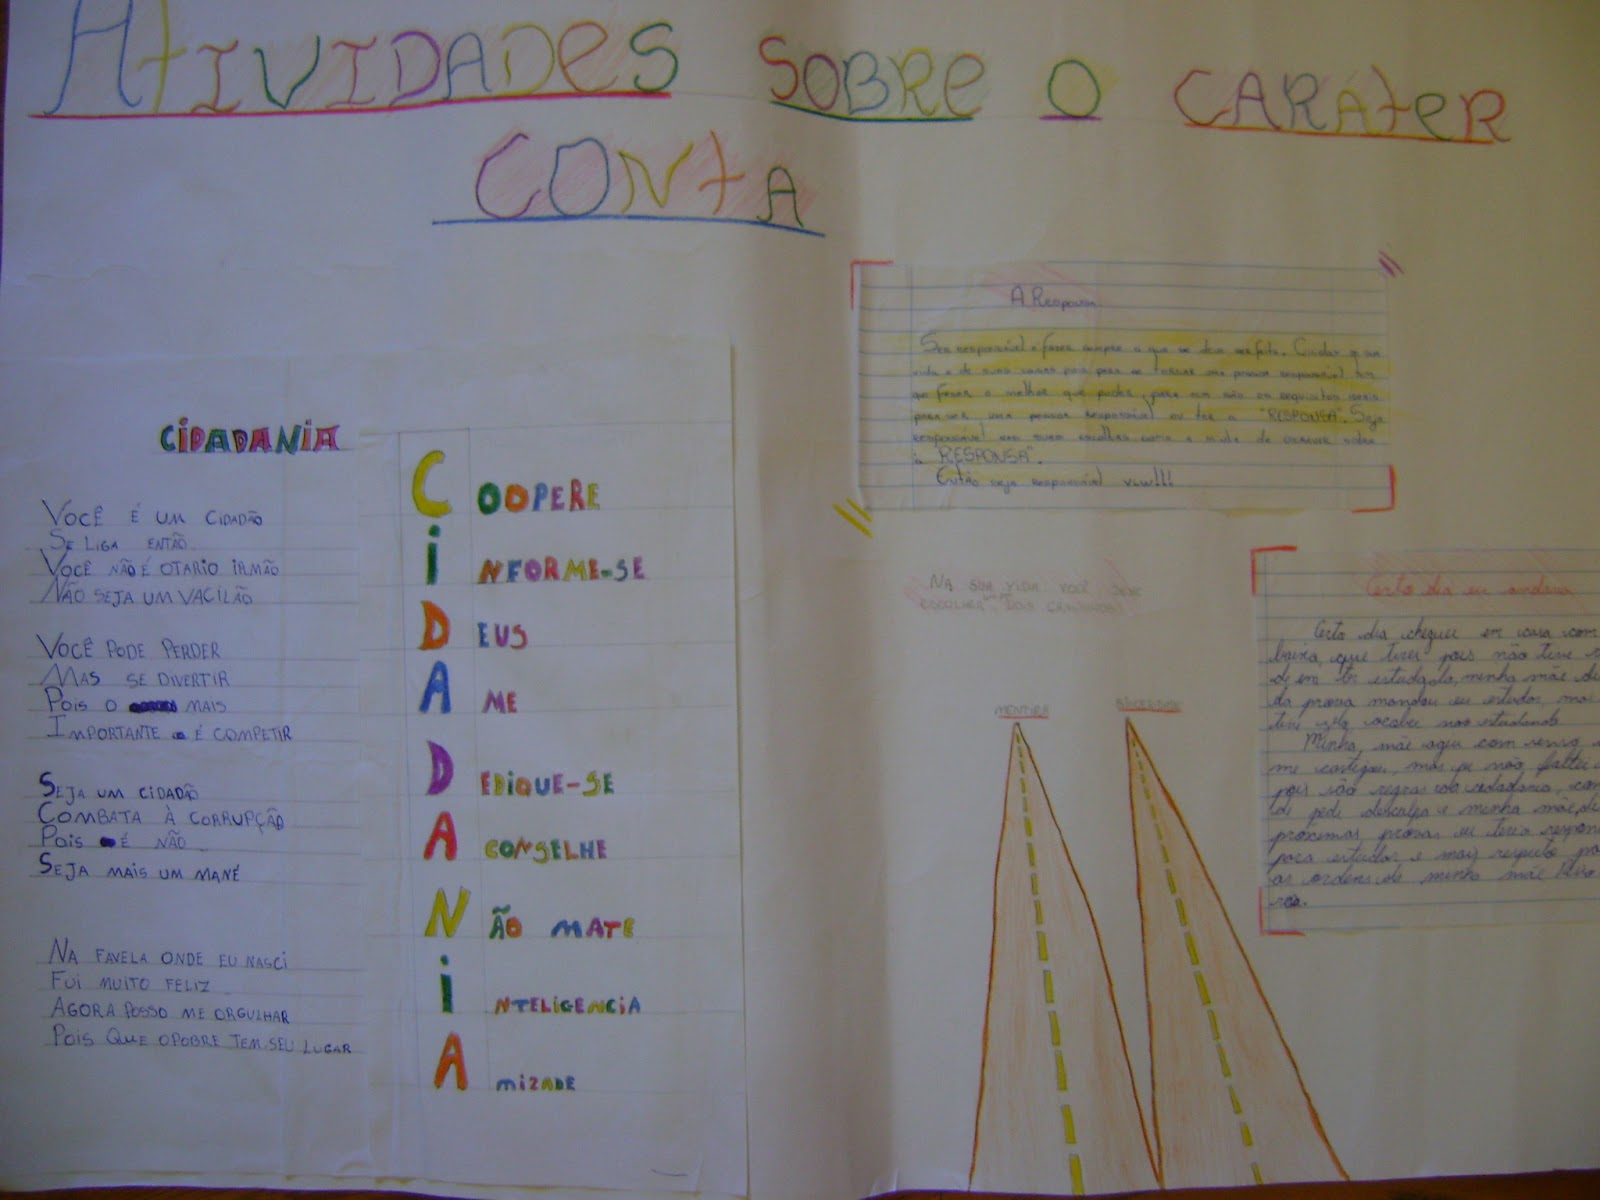 ATIVIDADES SOBRE O CARÁTER
CONTA
CIDADANIA
VOCÊ É UM CIDADÃO
SE LIGA ENTÃO
VOCÊ NÃO É OTARIO IRMÃO
NÃO SEJA UM VACILÃO
VOCÊ PODE PERDER
MAS SE DIVERTIR
POIS O MAIS
IMPORTANTE É COMPETIR
SEJA UM CIDADÃO
COMBATA À CORRUPÇÃO
POIS É NÃO
SEJA MAIS UM MANÉ
NA FAVELA ONDE EU NASCI
FUI MUITO FELIZ
AGORA POSSO ME ORGULHAR
POIS QUE O POBRE TEM SEU LUGAR
COOPERE
INFORME-SE
DEUS
AME
DEDIQUE-SE
ACONSELHE
NÃO MATE
INTELIGENCIA
AMIZADE
A Responsa
Ser responsável é fazer sempre o que se deve ser feito. Cuidar
vida e de suas para se tornar uma pessoa responsável tem
que fazer o melhor que puder, para
para ser uma pessoa responsável ou ter a "RESPONSA". Seja
responsável nas suas escolhas sobre
a "RESPONSA".
Então seja responsável vlw!!!
NA SUA VIDA VOCÊ DEVE
ESCOLHER DOIS CAMINHOS
MENTIRA
Certo dia eu andava
Certo dia cheguei em casa com
baixa, que tirei pois não tive
estudado, minha mãe
da prova mandou eu estudar, mas
não estudando.
Minha mãe agiu com
me castigou, mas não faltei
pois são regras da cidadania,
pedi desculpa e minha mãe,
proximas provas eu teria
para estudar e mais respeito
as ordens de minha mãe